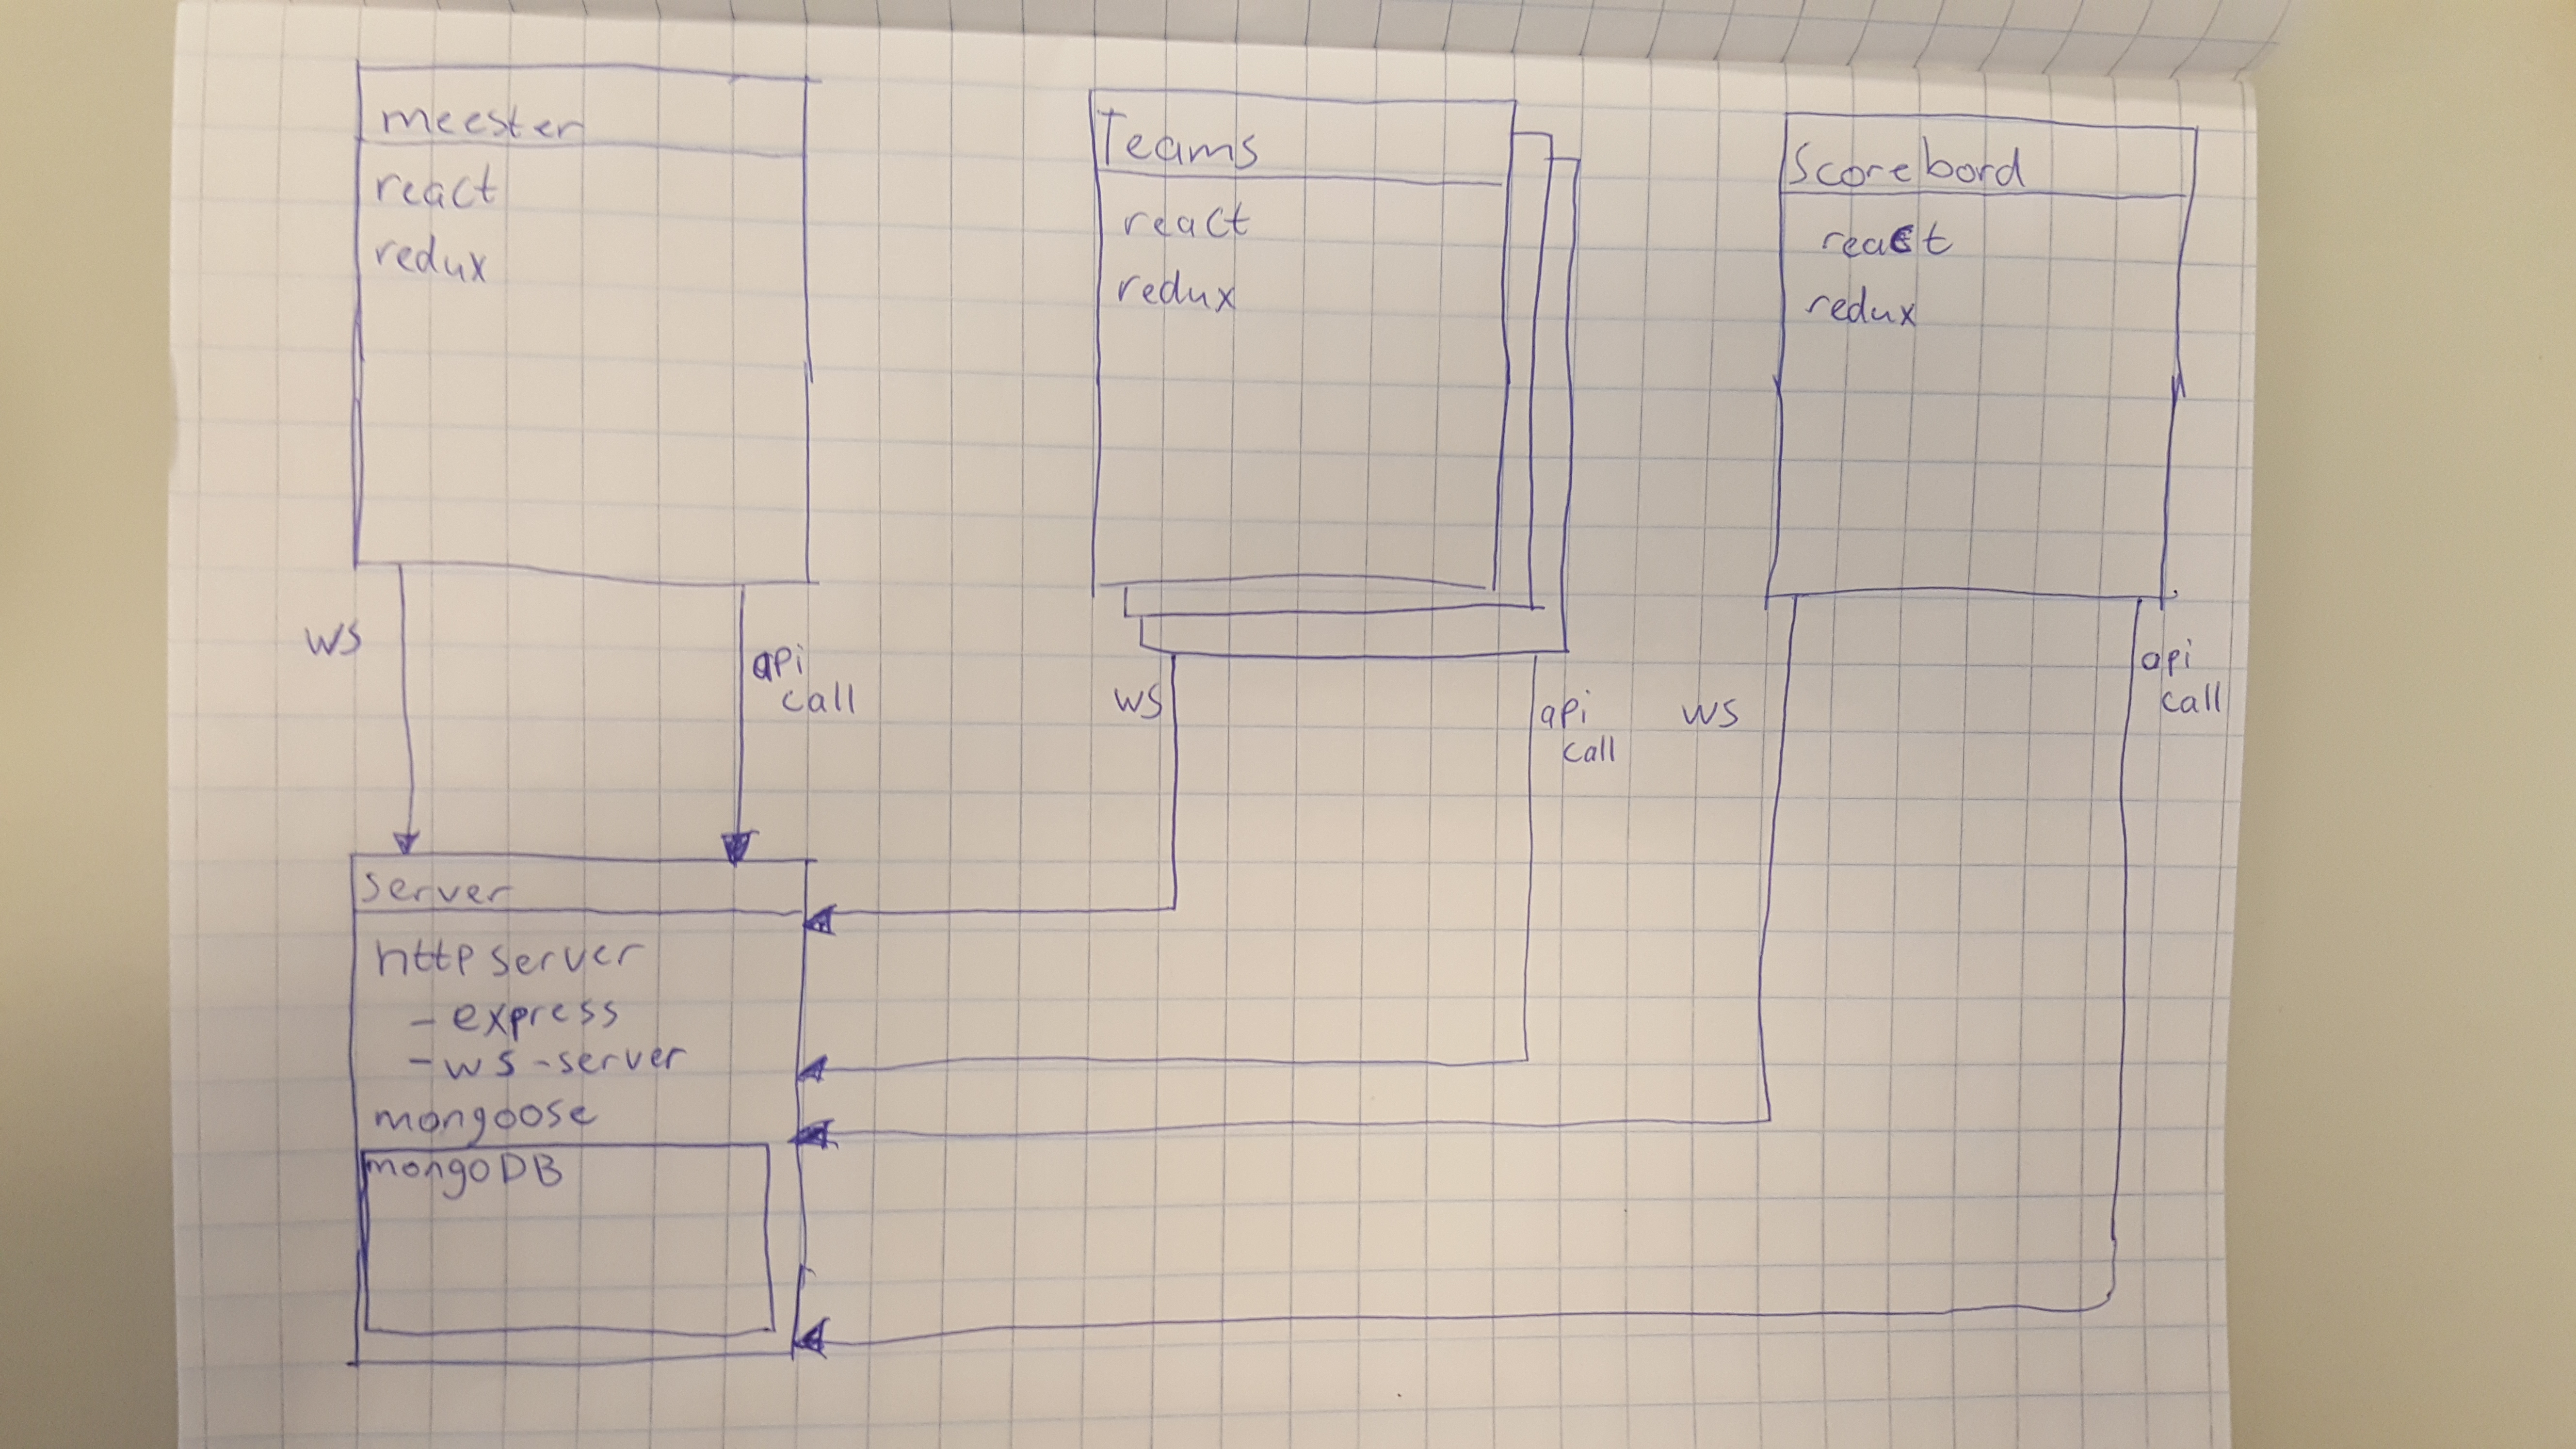 meester
react
redux
Teams
react
redux
Scorebord
react
redux
ws
api
call
ws
api
call
ws
api
call
server
http server
- express
- ws-server
mongoose
mongoDB